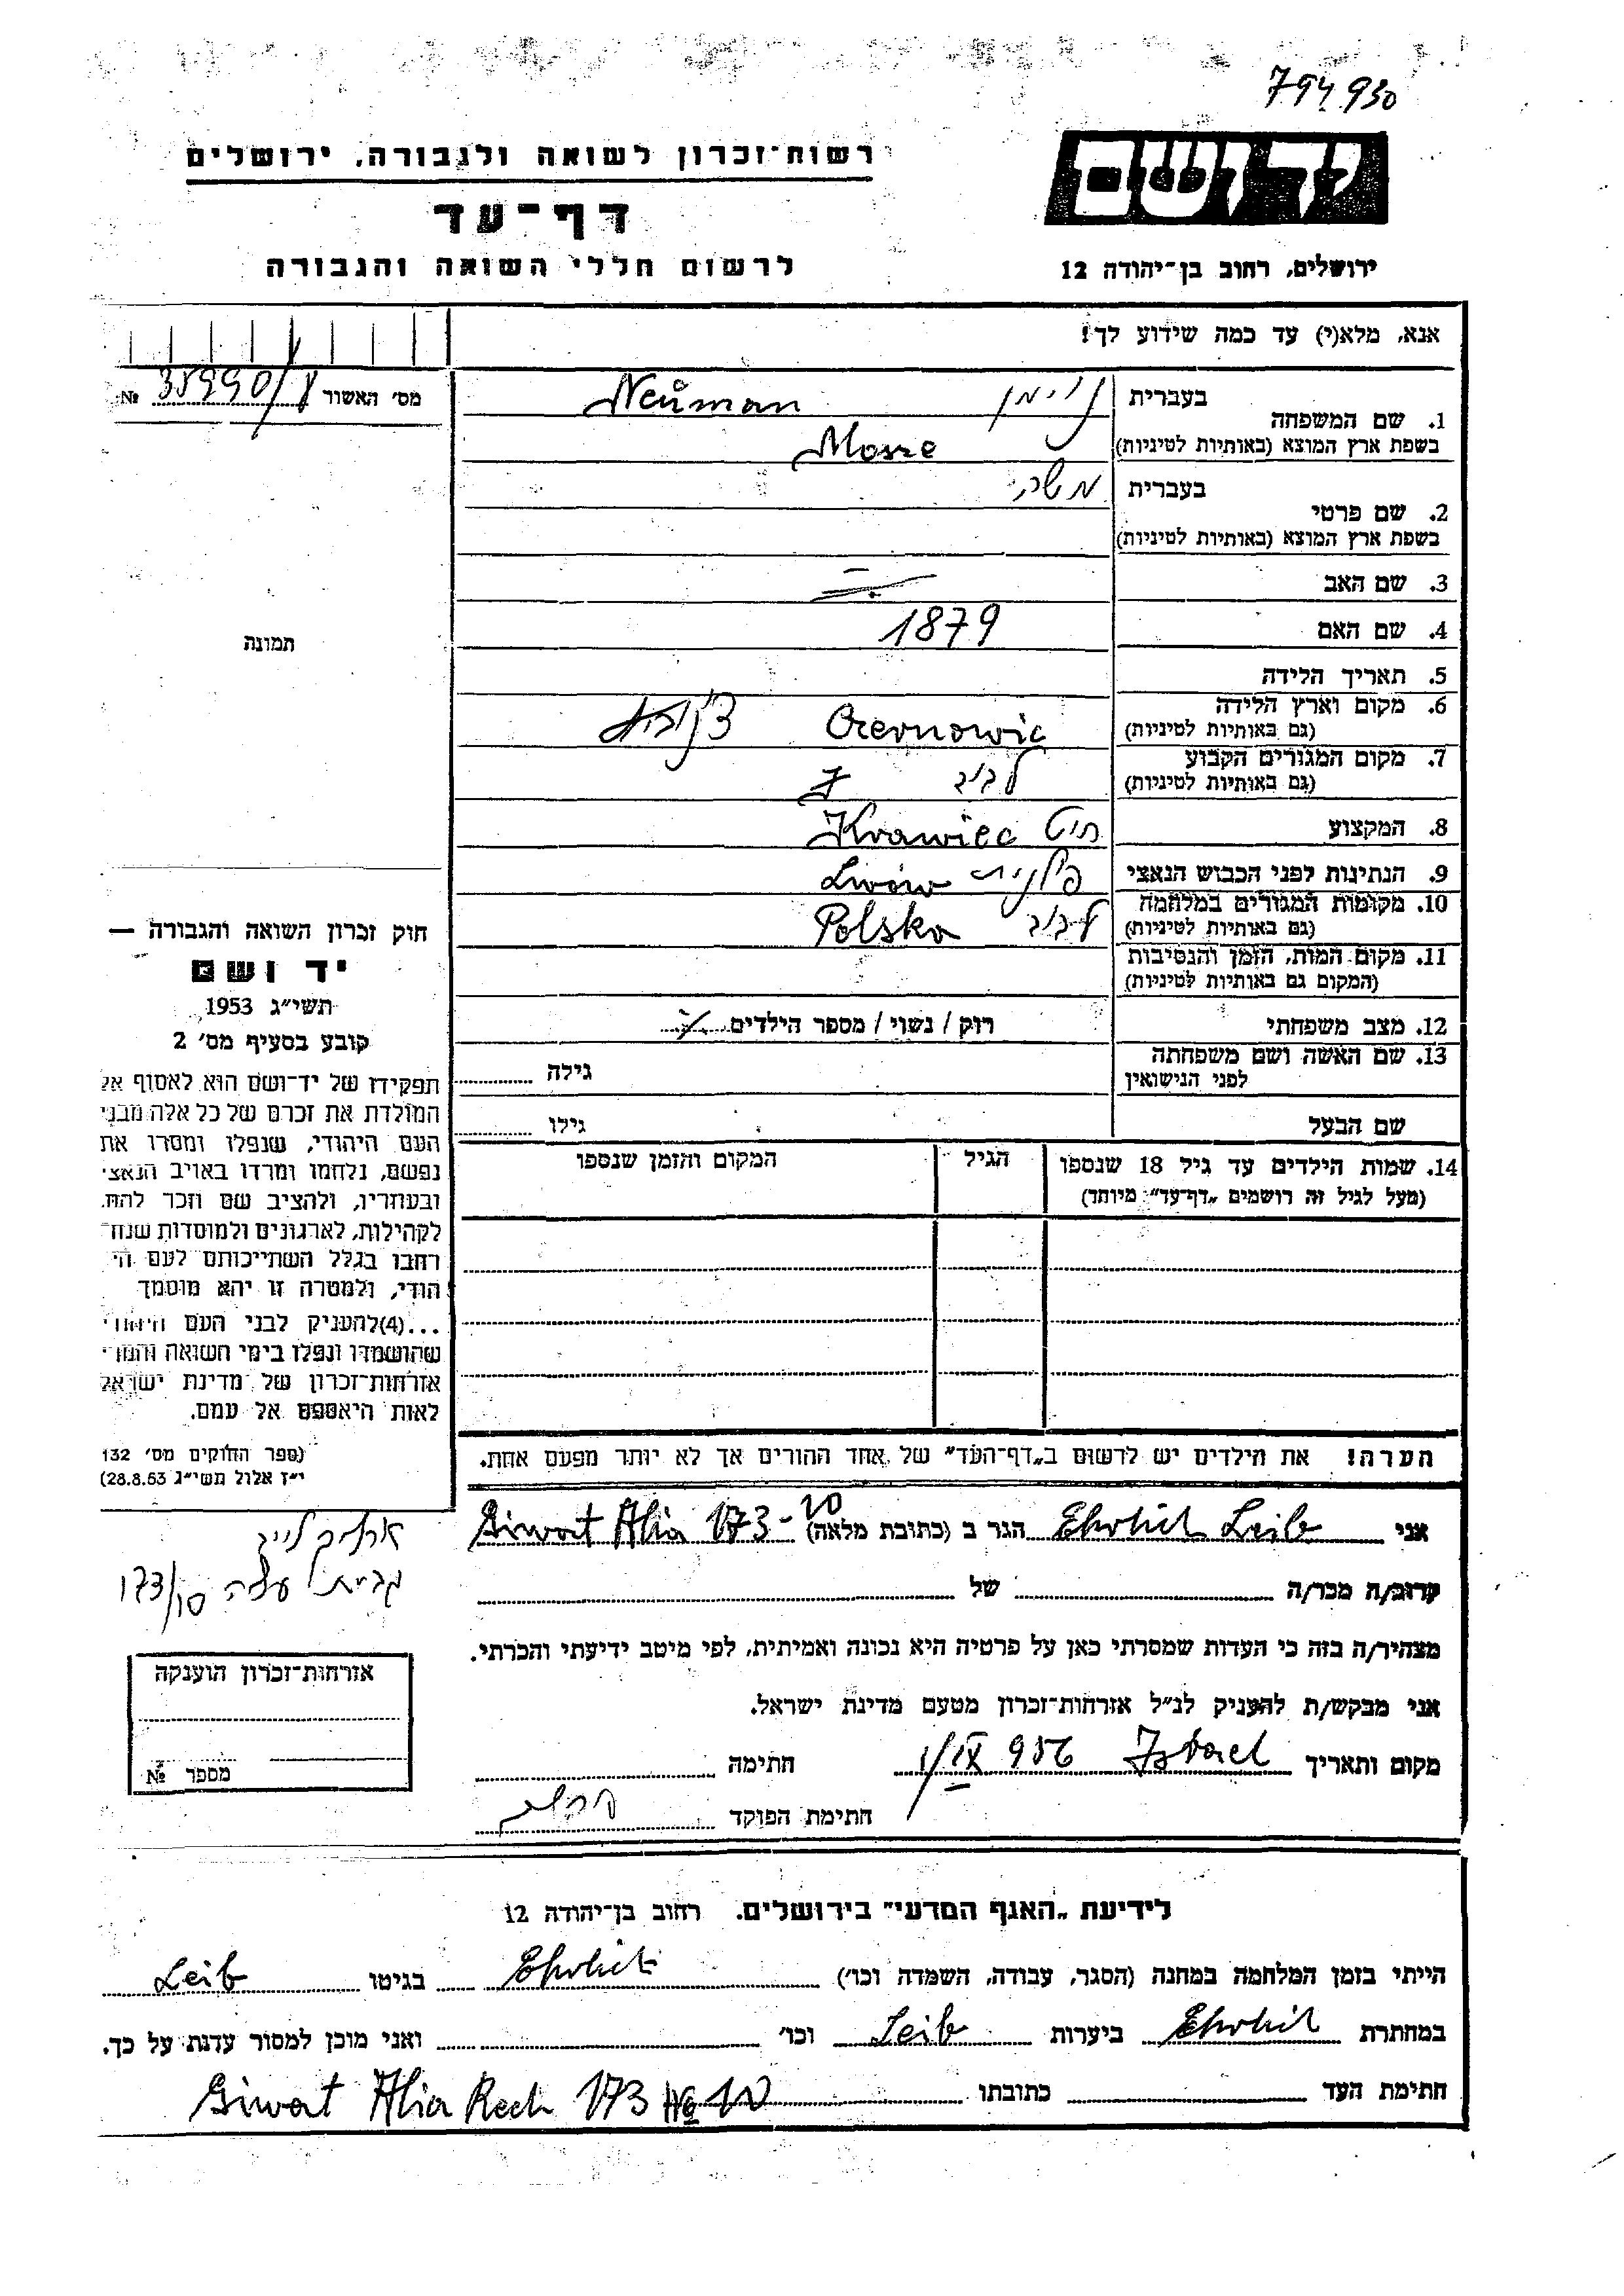 794930
יד ושם
רשות־זכרון לשואה ולגבורה, ירושלים
דף־עד
לרשום חללי השואה והגבורה
ירושלים, רחוב בן־יהודה 12
אנא, מלא(י) עד כמה שידוע לך!
מס׳ האשור 35990/ №
בעברית ניימן Neuman
1. שם המשפחה
בשפת ארץ המוצא (באותיות לטיניות) Mosze
בעברית משה
2. שם פרטי
בשפת ארץ המוצא (באותיות לטיניות)
3. שם האב
4. שם האם 1879
תמונה
5. תאריך הלידה
6. מקום וארץ הלידה
(גם באותיות לטיניות) Czernowic
7. מקום המגורים הקבוע
(גם באותיות לטיניות) לבוב
8. המקצוע חיט Krawiec
9. הנתינות לפני הכבוש הנאצי פולנית Lwów
10. מקומות המגורים במלחמה
(גם באותיות לטיניות) לבוב Polska
11. מקום המות, הזמן והנסיבות
(המקום גם באותיות לטיניות)
12. מצב משפחתי רוק / נשוי / מספר הילדים
13. שם האשה ושם משפחתה
לפני הנישואין גילה
שם הבעל גילו
חוק זכרון השואה והגבורה —
יד ושם
תשי״ג 1953
קובע בסעיף מס׳ 2
תפקידו של יד־ושם הוא לאסוף אל
המולדת את זכרם של כל אלה מבני
העם היהודי, שנפלו ומסרו את
נפשם, נלחמו ומרדו באויב הנאצי
ובעוזריו, ולהציב שם וזכר להם,
לקהילות, לארגונים ולמוסדות שנח־
רחבו בגלל השתייכותם לעם הי־
הודי, ולמטרה זו יהא מוסמך
...(4)להעניק לבני העם היהודי
שהושמדו ונפלו בימי השואה והמרי
אזרחות־זכרון של מדינת ישראל
לאות היאספם אל עמם.
(ספר החוקים מס׳ 132
י״ז אלול תשי״ג 28.8.53)
14. שמות הילדים עד גיל 18 שנספו הגיל המקום והזמן שנספו
(מעל לגיל זה רושמים „דף־עד״ מיוחד)
הערה! את הילדים יש לרשום ב„דף־העד״ של אחד ההורים אך לא יותר מפעם אחת.
אני Ehrlich Leib הגר ב (כתובת מלאה) Giwat Alia 173-10
ארליך לייב
גבעת עליה 173/10
קרוב/ה מכר/ה של
מצהיר/ה בזה כי העדות שמסרתי כאן על פרטיה היא נכונה ואמיתית, לפי מיטב ידיעתי והכרתי.
אני מבקש/ת להעניק לנ״ל אזרחות־זכרון מטעם מדינת ישראל.
מקום ותאריך Israel 1/IX 956 חתימה
חתימת הפוקד
אזרחות־זכרון הוענקה
מספר №
לידיעת „האגף המדעי״ בירושלים. רחוב בן־יהודה 12
הייתי בזמן המלחמה במחנה (הסגר, עבודה, השמדה וכו׳) Ehrlich בגיטו Leib
במחתרת Ehrlich ביערות Leib וכו׳ ואני מוכן למסור עדות על כך.
חתימת העד כתובתו Giwat Alia Rech 173 No 10